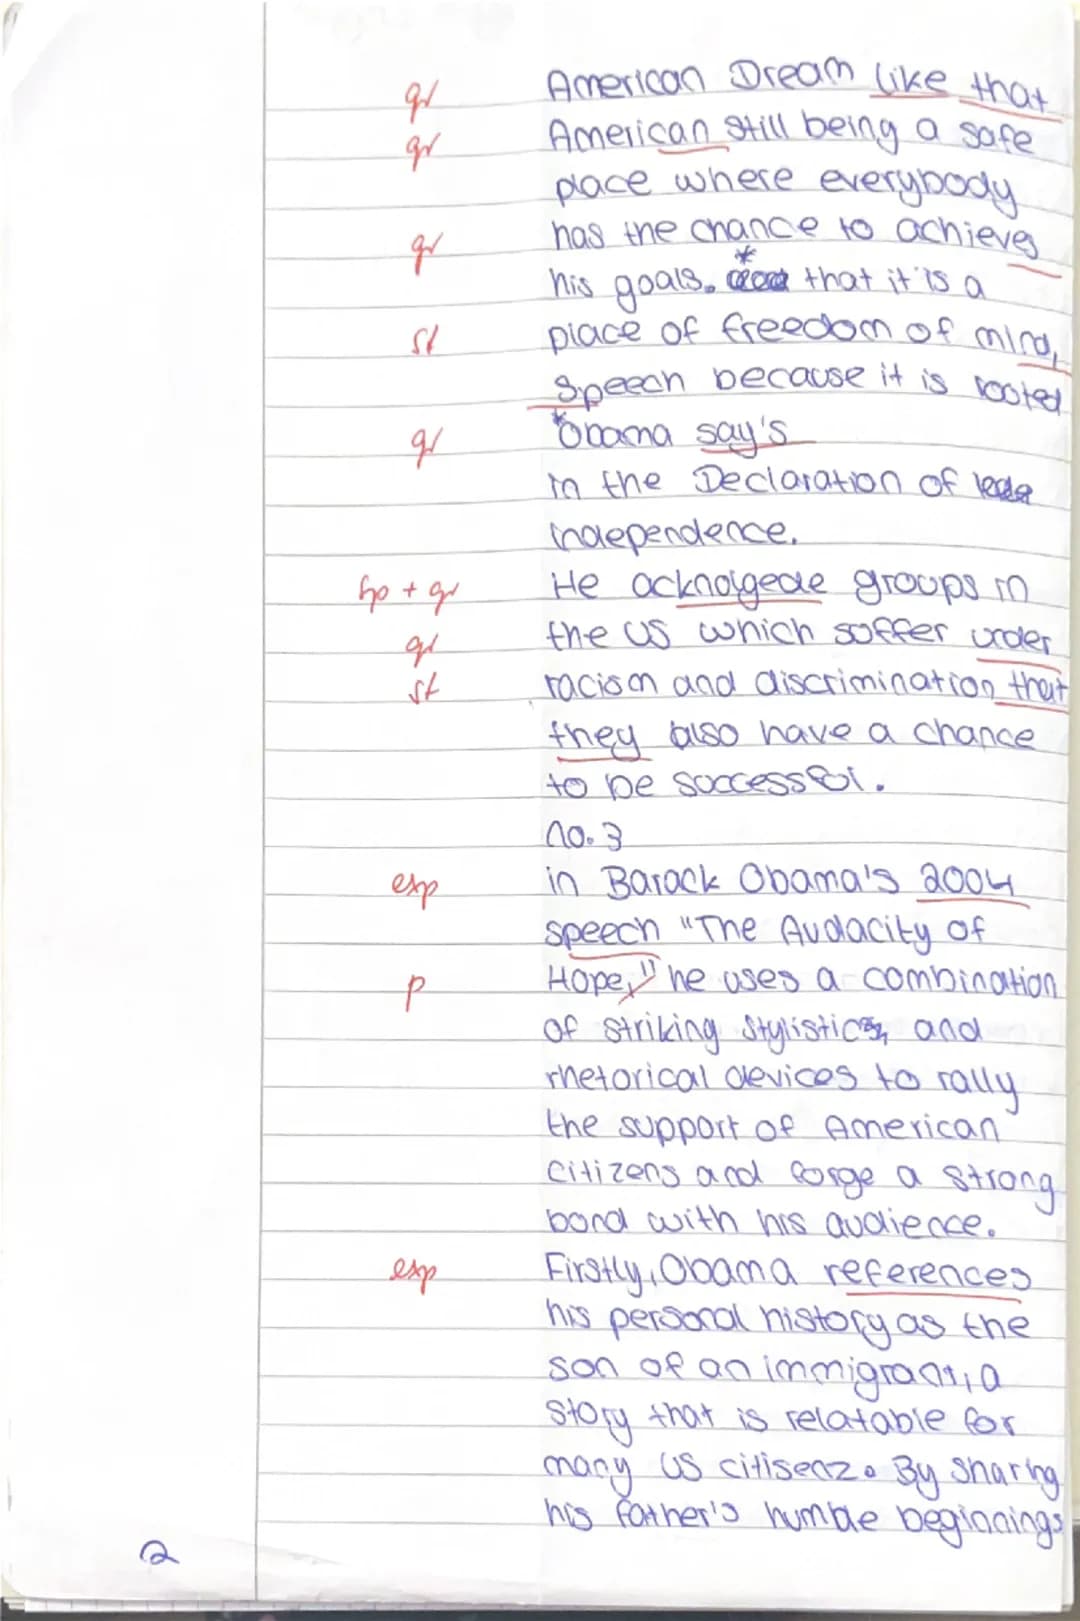 gr American Dream like that
gr American still being a safe
place where everybody
gr has the chance to achieves
his goals. * that it is a
st place of freedom of mind,
speech because it is rooted
gr *Obama say's
in the Declaration of
independence.
sp + gr He acknolgede groups in
gr the US which soffer under
st racism and discrimination that
they also have a chance
to be successful.
no. 3
exp in Barack Obama's 2004
speech "The Audacity of
p Hope," he uses a combination
of striking stylistic and
rhetorical devices to rally
the support of American
citizens and forge a strong
bond with his audience.
exp Firstly, Obama references
his personal history as the
son of an immigrant, a
story that is relatable for
many US citisenz. By sharing
his father's humble beginnings
2